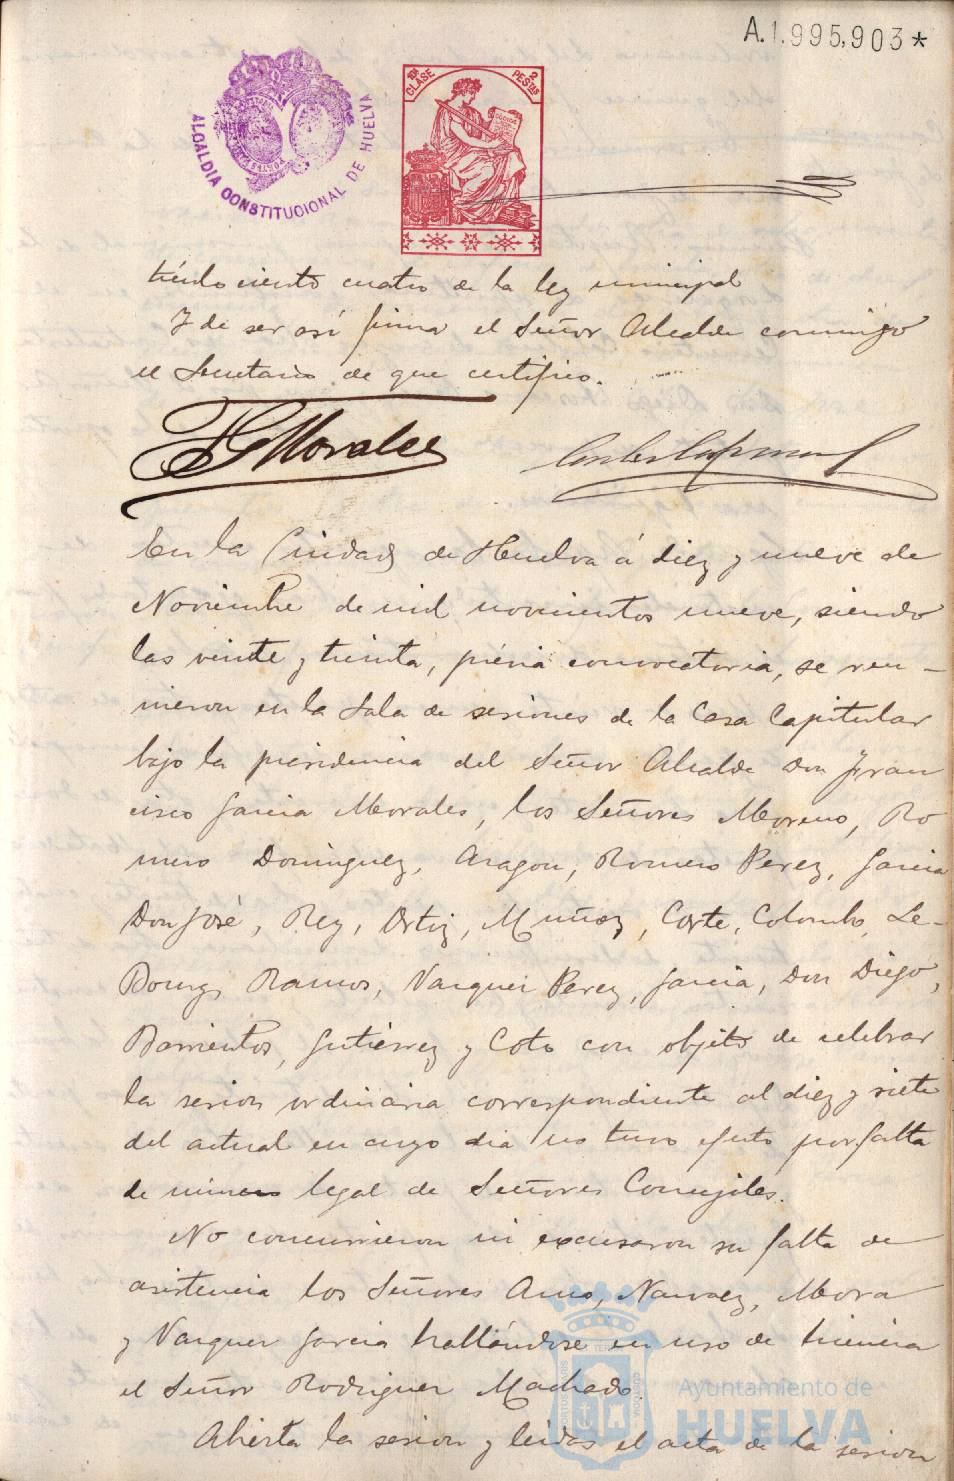 A.1.995,903*
ALCALDIA CONSTITUCIONAL DE HUELVA
CLASE
2 PESTAS
tículo ciento cuatro de la ley municipal
Y de ser así firma el Señor Alcalde conmigo
el Secretario de que certifico.
F G Morales
En la Ciudad de Huelva á diez y nueve de
Noviembre de mil novecientos nueve, siendo
las veinte y treinta, prévia convocatoria, se reu-
nieron en la Sala de sesiones de la Casa Capitular
bajo la presidencia del Señor Alcalde Don Fran
cisco Garcia Morales, los Señores Moreno, Ro
mero Dominguez, Aragon, Romero Perez, Garcia
Don José, Rey, Ortiz, Muñoz, Corte, Colombo, Le-
Bourg, Ramos, Vazquez Perez, Garcia, Don Diego,
Barrientos, Gutiérrez y Coto con objeto de celebrar
la sesion ordinaria correspondiente al diez y siete
del actual en cuyo dia no tuvo efecto por falta
de número legal de Señores Concejiles.
No concurrieron ni excusaron su falta de
asistencia los Señores Narvaez, Mora
y Vazquez Garcia hallándose en uso de licencia
el Señor Rodriguez Machado
Abierta la sesion y leidas el acta de la sesion
Ayuntamiento de
HUELVA